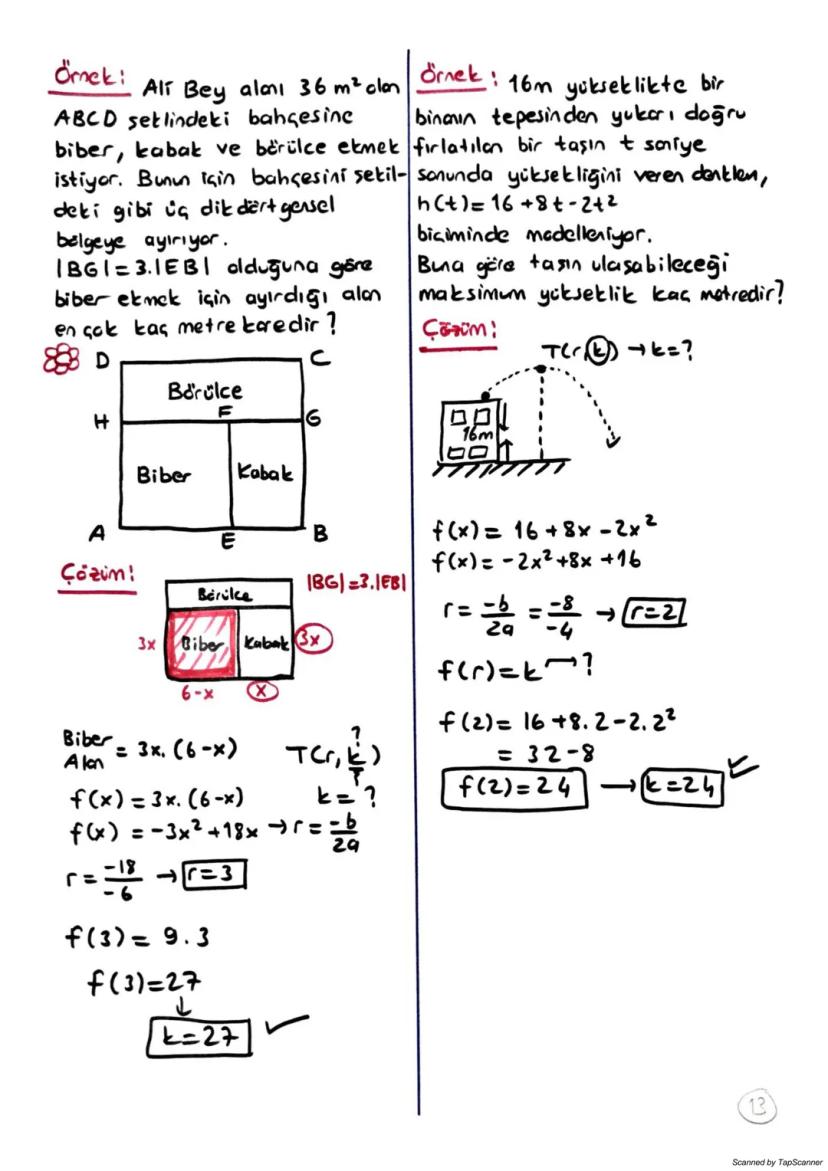 Örnek: Ali Bey alanı 36 m² olan
ABCD şeklindeki bahçesine
biber, kabak ve börülce ekmek
istiyor. Bunun için bahçesini şekil-
deki gibi üç dikdörtgensel
bölgeye ayırıyor.
|BG| = 3.|EB| olduğuna göre
biber ekmek için ayırdığı alan
en çok kaç metrekaredir?
D C
Börülce
H F G
Biber Kabak
A E B
Çözüm:
|BG|=3.|EB|
Börülce
3x Biber Kabak 3x
6-x x
Biber Alan = 3x.(6-x) T(r,k)
?
f(x) = 3x.(6-x) k=?
f(x) = -3x²+18x → r = -b/2a
r = -18/-6 → r=3
f(3) = 9.3
f(3)=27
↓
k=27 ✓
Örnek: 16m yükseklikte bir
binanın tepesinden yukarı doğru
fırlatılan bir taşın t saniye
sonunda yüksekliğini veren denklem,
h(t)= 16 +8t-2t²
biçiminde modelleniyor.
Buna göre taşın ulaşabileceği
maksimum yükseklik kaç metredir?
Çözüm:
T(r,k) → k=?
16m
f(x) = 16 +8x -2x²
f(x) = -2x²+8x +16
r = -b/2a = -8/-4 → r=2
f(r)=k → ?
f(2) = 16+8.2-2.2²
= 32-8
f(2)=24 → k=24 ✓
13
Scanned by TapScanner